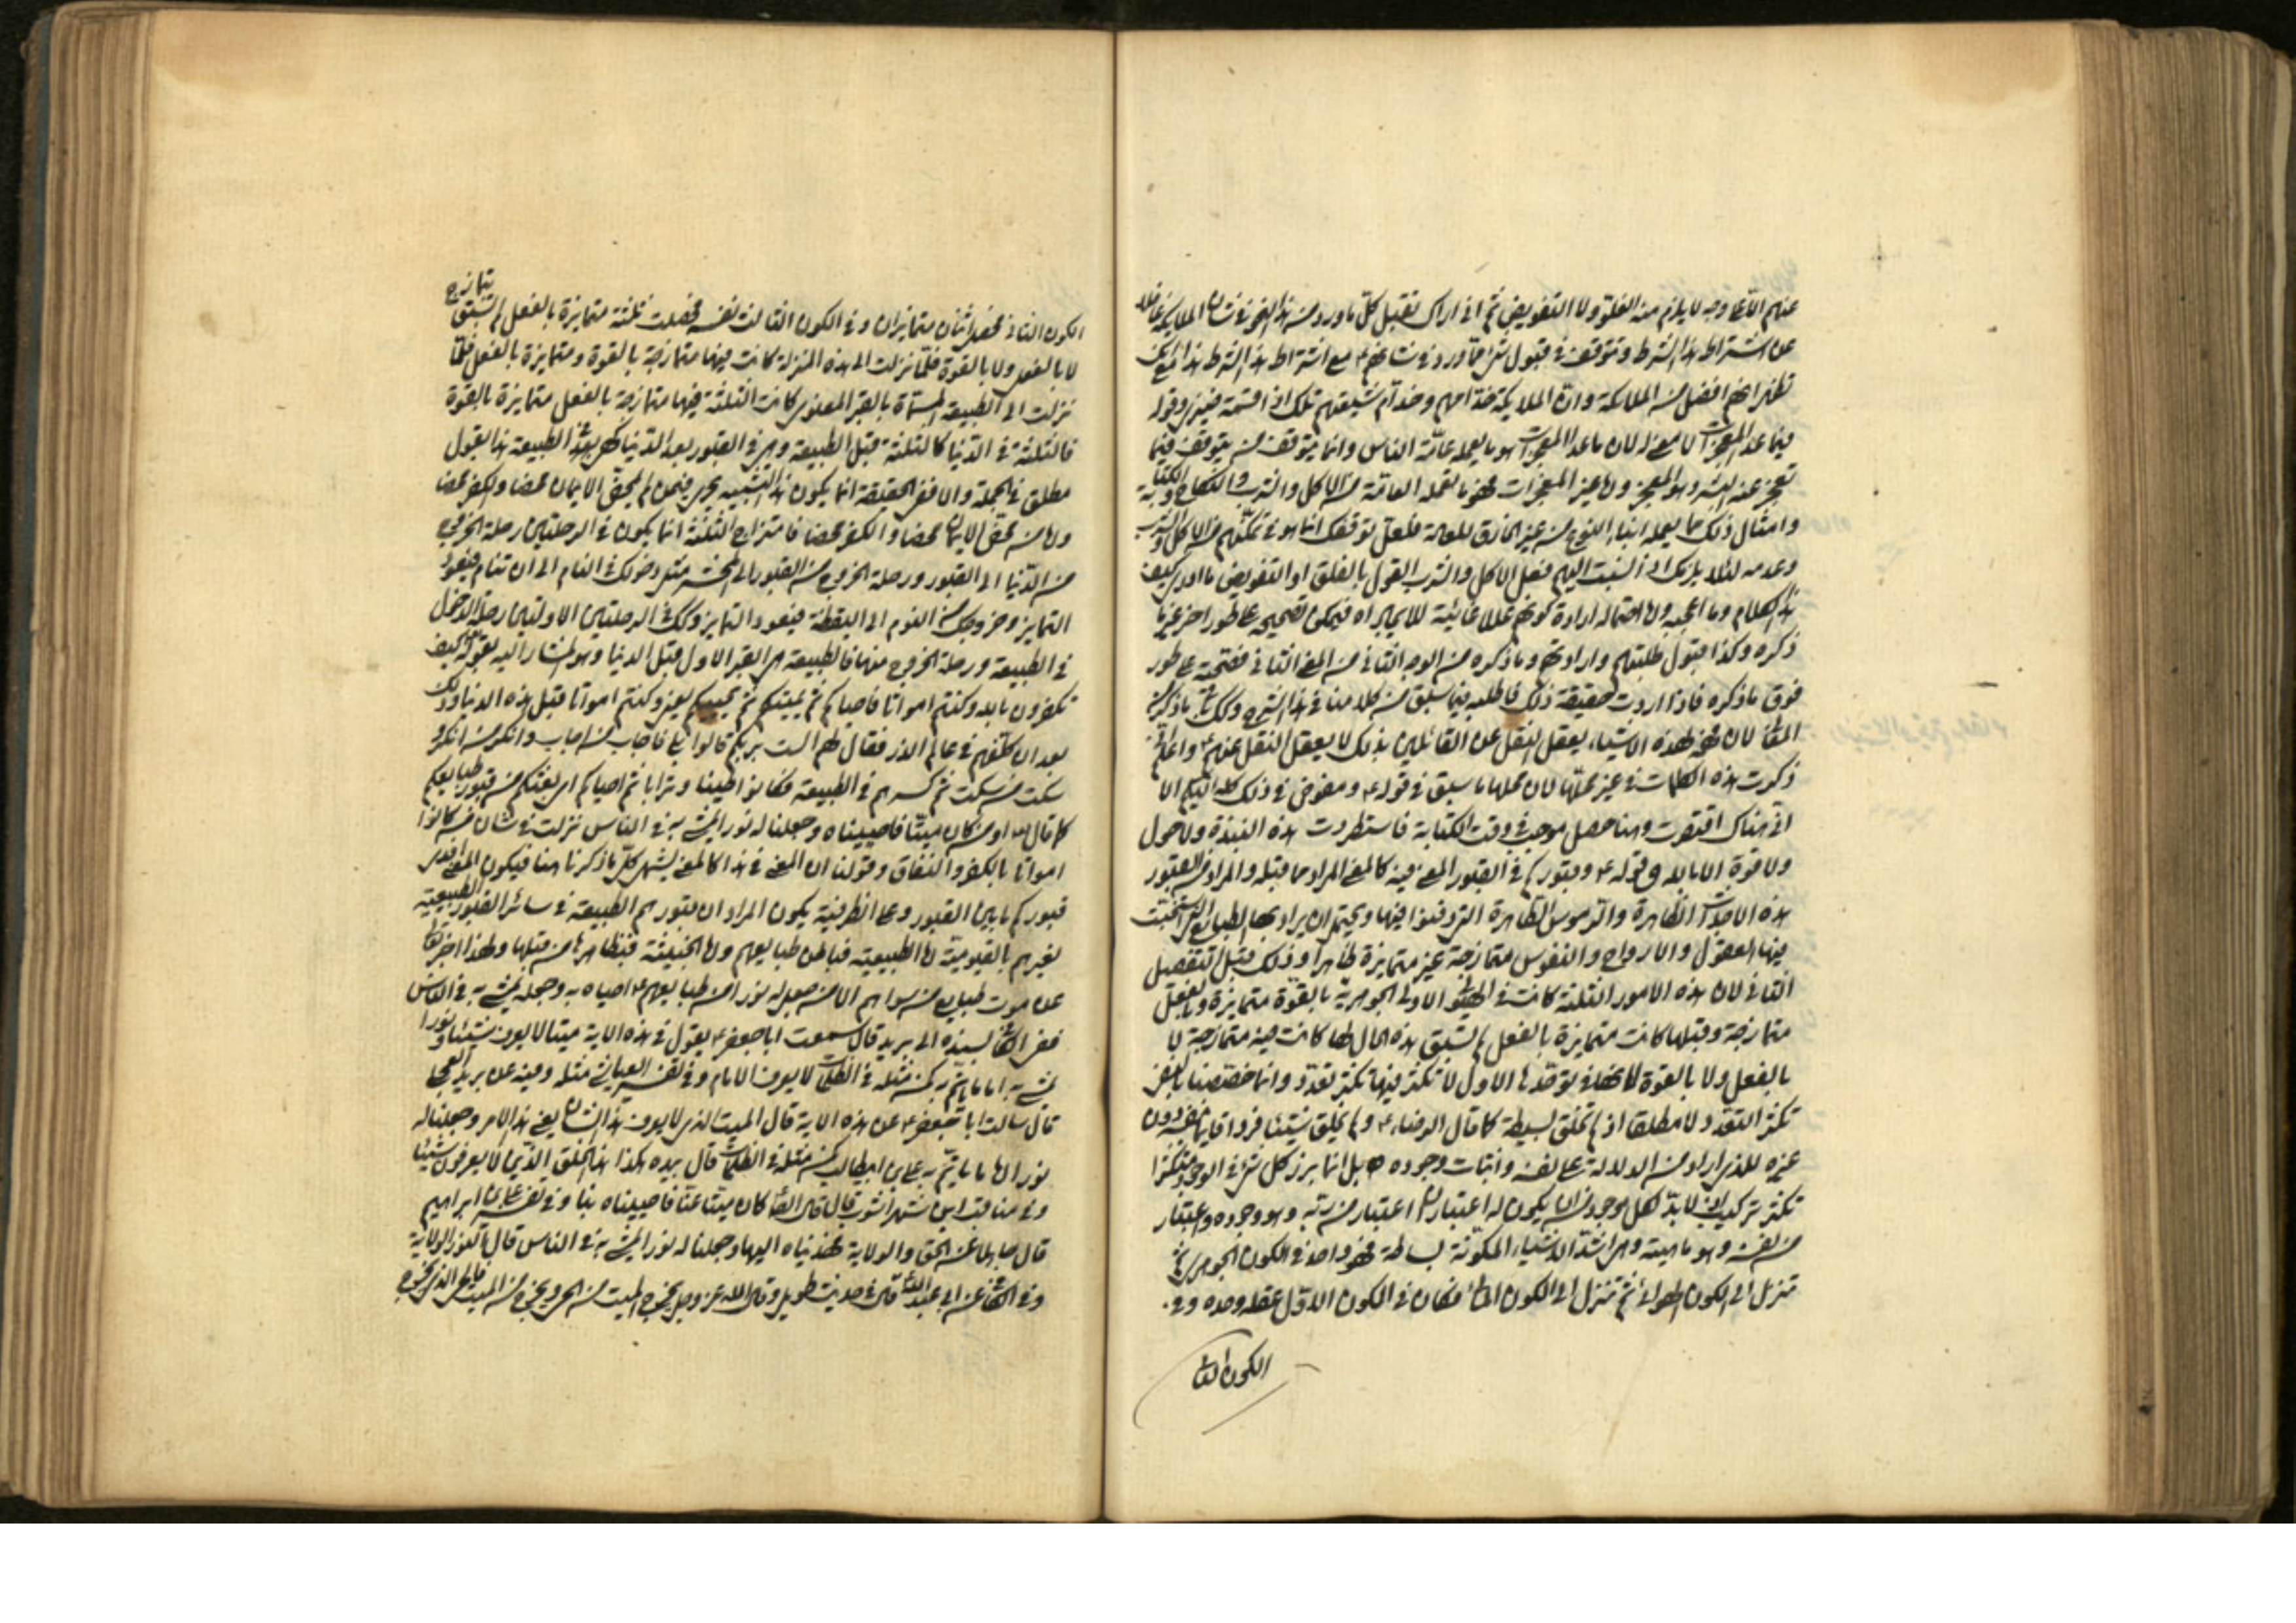 عنهم الا على وجه لا يلزم منه الغلو ولا التفويض ثم انى اراك تقبل كل ما ورد من هذا النحو فى شان الملايكة غافلا
عن اشتراط هذا الشرط وتتوقف فى قبول شىء مما ورد فى شانهم ع مع اشتراط هذا الشرط
انهم افضل من الملائكة وان الملايكة خدامهم وخدام شيعتهم تلك اذا قسمة ضيزى وقوله
فيما عدا المعجزات لا معنى له لان ما عدا المعجزات هو ما يعمله عامة الناس وانما يتوقف من يتوقف فيما
تعجز عنه البشر وهو المعجز واما غير المعجزات فهو ما تعمله العامة من الاكل والشرب والنكاح والكتابة
وامثال ذلك مما يعمله ابناء النوع من غير الخارق للعادة فلعل توقفك انما هو فى تمكنهم من الاكل والشرب
وعدمه لئلا يلزمك اذا نسبت اليهم فعل الاكل والشرب القول بالغلو او التفويض ما ادرى كيف
هذا الكلام وما اعجبه واما احتماله ارادة كونهم عللا غائية للايجاد فيمكن تصحيحه على طور اخر غير ما
ذكره وكذا قبول طلبتهم وارادتهم وما ذكره من الوجه الثانى من المعنى الثانى فصحته على طور
فوق ما ذكره فاذا اردت حقيقة ذلك فاطلبه فيما سبق من كلامنا فى هذا الشرح وكذلك ما ذكره من
لان نحو هذه الاشياء يعقل النقل عن القائلين بذلك لا يعقل النقل عنهم ع واعلم انى
ذكرت هذه الكلمات فى غير محلها لان محلها ما سبق فى قوله ع ومفوض فى ذلك كله اليكم الا
انى هناك اقتصرت وهنا حصل موجب فى وقت الكتابة فاستطردت هذه النبذة ولا حول
ولا قوة الا بالله وقوله ع وقبوركم فى القبور المعنى فيه كالمعنى المراد مما قبله والمراد من القبور
هذه الاجداث الظاهرة والرموس الطاهرة التى دفنوا فيها ويحتمل ان يراد بها الطبايع التى
فيها العقول والارواح والنفوس متمازجة غير متمايزة ظاهرا وذلك قبل التفصيل
الثانى لان هذه الامور الثلثة كانت فى الهيولى الاولى الجوهرية بالقوة متمايزة وبالفعل
متمازجة وقبلها كانت متمايزة بالفعل لم تسبق هذه الحال لها كانت فيه متمازجة لا
بالفعل ولا بالقوة لانها فى توحدها الاول لا تكثر فيها تكثر تعدد وانما خصصنا النفى
تكثر التعدد لا مطلقا اذ لم تخلق بسيطة كما قال الرضا ع ولم يخلق شيئا فردا قايما بنفسه دون
غيره للذى اراد من الدلالة على نفسه واثبات وجوده بل انما برز كل شىء فى الوجود متكثرا
تكثر تركيب اذ لا بد لكل موجود ان يكون له اعتباران اعتبار من ربه وهو وجوده واعتبار
من نفسه وهو ماهيته وهى اشد الاشياء المكونة بساطة فهو واحد فى الكون الجوهرى ثم
تنزل الى الكون الهوائى ثم تنزل الى الكون المائى فكان فى الكون الاول عقله وحده وفى
الكون الثانى
الكون الثانى فحصل اثنان متمايزان وفى الكون الثالث نفسه فحصلت ثلثة متمايزة بالفعل لم تسبق بتمازج
لا بالفعل ولا بالقوة فلما نزلت الى هذه المنزلة كانت فيها متمازجة بالقوة ومتمايزة بالفعل فلما
نزلت الى الطبيعة المسماة بالقبر المعنوى كانت الثلثة فيها متمازجة بالفعل متمايزة بالقوة
فالثلثة فى الدنيا كالثلثة قبل الطبيعة وهى فى القبور بعد الدنيا كهى فى الطبيعة هذا بقول
مطلق فى الجملة والا ففى الحقيقة انما يكون هذا التشبيه يجرى فيمن لم يمحض الايمان محضا والكفر محضا
واما من محض الايمان محضا والكفر محضا فامتزاج الثلثة انما يكون فى الرحلتين رحلة الخروج
من الدنيا الى القبور ورحلة الخروج من القبور الى المحشر مثل دخولك فى النام الى ان تنام فيعود
التمايز وخروجك من النوم الى اليقظة فيعود التمايز وكذلك الرحلتين الاولتين رحلة الدخول
فى الطبيعة ورحلة الخروج منها فالطبيعة هى القبر الاول قبل الدنيا وهو المشار اليه بقوله تعالى كيف
تكفرون بالله وكنتم امواتا فاحياكم ثم يميتكم ثم يحييكم يعنى وكنتم امواتا قبل هذه الدنيا وذلك
بعد ان كلفهم فى عالم الذر فقال لهم الست بربكم قالوا بلى فاجاب من اجاب وانكر من انكر و
سكت من سكت ثم كسرهم فى الطبيعة فكانوا طينا وترابا ثم احياكم اى بعثكم من قبور طبايعكم
كما قال تع او من كان ميتا فاحييناه وجعلنا له نورا يمشى به فى الناس نزلت فى شان من كانوا
امواتا بالكفر والنفاق وقولنا ان المعنى فى هذا كالمعنى يشهر كل ما ذكرنا هنا فيكون المعنى
قبوركم ما بين القبور وعلى الظرفية يكون المراد ان قبورهم الطبيعة فى سائر القبور الطبيعية
لغيرهم بالقيومية واما الطبيعية فباطن طبايعهم واما الخبيثة فبظاهرها من قبلها ولهذا اخبر تعالى
عن موت طبايع من سواهم الا من جعل له نورا من طبايعهم ع احياه به وجعله يمشى به فى الناس
ففى الكافى بسنده الى بريد قال سمعت ابا جعفر ع يقول فى هذه الاية ميتا لا يعرف شيئا ونورا
يمشى به اماما يأتم به كمن مثله فى الظلمات لا يعرف الامام وفى تفسير العياشى مثله وفيه عن بريد العجلى
قال سالت ابا جعفر ع عن هذه الاية قال الميت الذى لا يعرف هذا الشان يعنى هذا الامر وجعلنا له
نورا اماما يأتم به على بن ابيطالب كمن مثله فى الظلمات قال بيده هكذا هذا الخلق الذين لا يعرفون شيئا
وفى مناقب ابن شهراشوب قال قال الصادق كان ميتا عنا فاحييناه بنا وفى تفسير على بن ابراهيم
قال جاهلا عن الحق والولاية فهديناه اليها وجعلنا له نورا يمشى به فى الناس قال النور الولاية
وفى الكافى عن ابى عبد الله قال فى حديث طويل وقال الله عز وجل يخرج الحى من الميت ويخرج الميت من الحى فالحى الذى يخرج